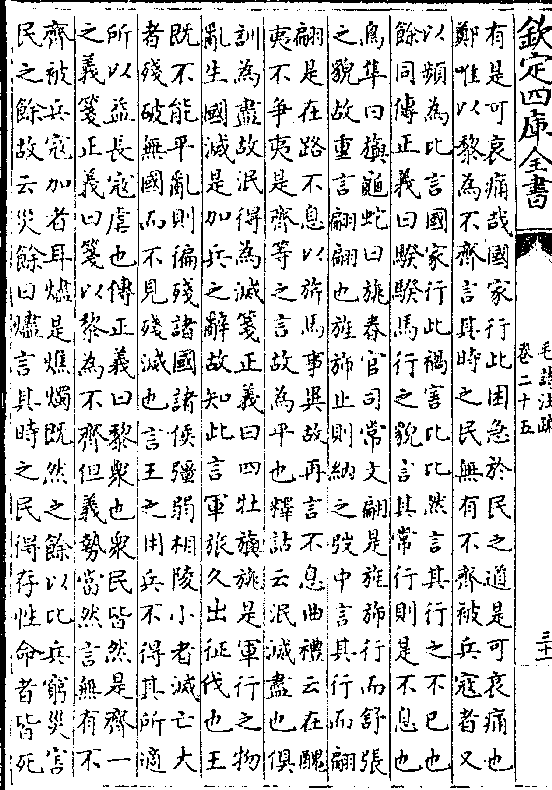 欽定四庫全書
毛詩注疏
卷二十五
三十一
有是可哀痛哉國家行此困急於民之道是可哀痛也
鄭唯以黎為不齊言其時之民無有不齊被兵寇者又
以頻為比言國家行此禍害比比然言其行之不已也
餘同傳正義曰騤騤馬行之貌言其常行則是不息也
鳥隼曰旟龜蛇曰旐春官司常文翩是旌旂行而舒張
之貌故重言翩翩也旌旂止則納之弢中言其行而翩
翩是在路不息以旂馬事異故再言不息曲禮云在醜
夷不爭夷是齊等之言故為平也釋詁云泯滅盡也俱
訓為盡故泯得為滅箋正義曰四牡旟旐是軍行之物
亂生國滅是加兵之辭故知此言軍旅久出征伐也王
既不能平亂則徧殘諸國諸侯彊弱相陵小者滅亡大
者殘破無國而不見殘滅也言王之用兵不得其所適
所以益長寇虐也傳正義曰黎衆也衆民皆然是齊一
之義箋正義曰箋以黎為不齊但義勢當然言無有不
齊被兵寇加者耳燼是燋燭既然之餘以比兵窮災害
民之餘故云災餘曰燼言其時之民得存性命者皆死